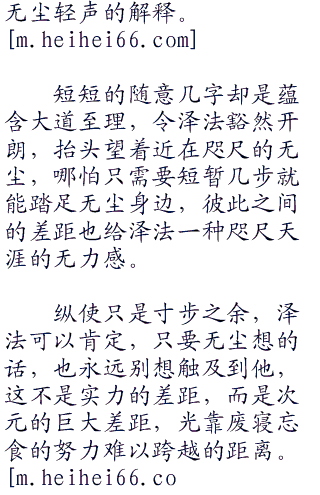 无尘轻声的解释。
[m.heihei66.com]
短短的随意几字却是蕴
含大道至理，令泽法豁然开
朗，抬头望着近在咫尺的无
尘，哪怕只需要短暂几步就
能踏足无尘身边，彼此之间
的差距也给泽法一种咫尺天
涯的无力感。
纵使只是寸步之余，泽
法可以肯定，只要无尘想的
话，也永远别想触及到他，
这不是实力的差距，而是次
元的巨大差距，光靠废寝忘
食的努力难以跨越的距离。
[m.heihei66.co